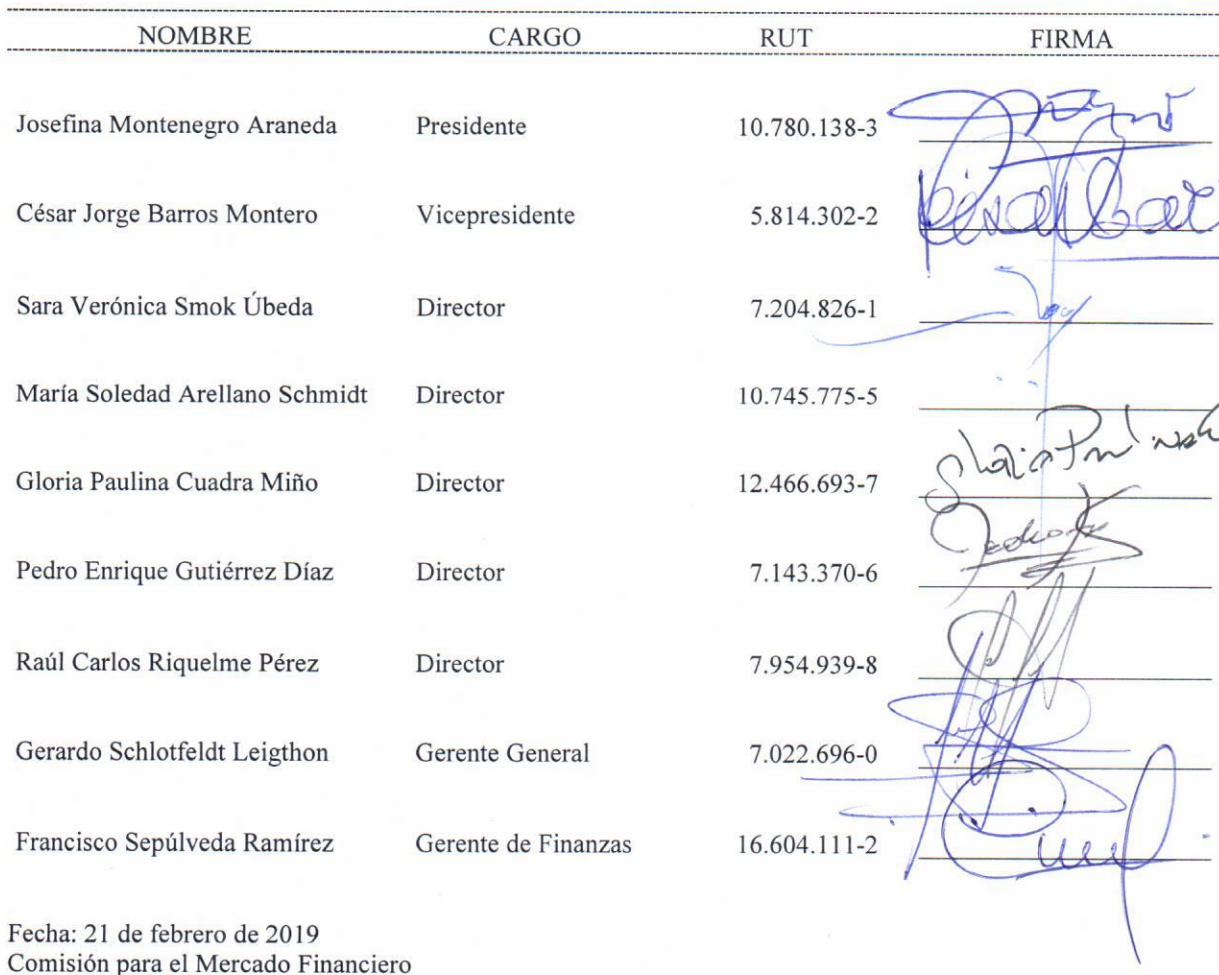 NOMBRE CARGO RUT FIRMA
Josefina Montenegro Araneda Presidente 10.780.138-3
César Jorge Barros Montero Vicepresidente 5.814.302-2
Sara Verónica Smok Úbeda Director 7.204.826-1
María Soledad Arellano Schmidt Director 10.745.775-5
Gloria Paulina Cuadra Miño Director 12.466.693-7
Pedro Enrique Gutiérrez Díaz Director 7.143.370-6
Raúl Carlos Riquelme Pérez Director 7.954.939-8
Gerardo Schlotfeldt Leigthon Gerente General 7.022.696-0
Francisco Sepúlveda Ramírez Gerente de Finanzas 16.604.111-2
Fecha: 21 de febrero de 2019
Comisión para el Mercado Financiero